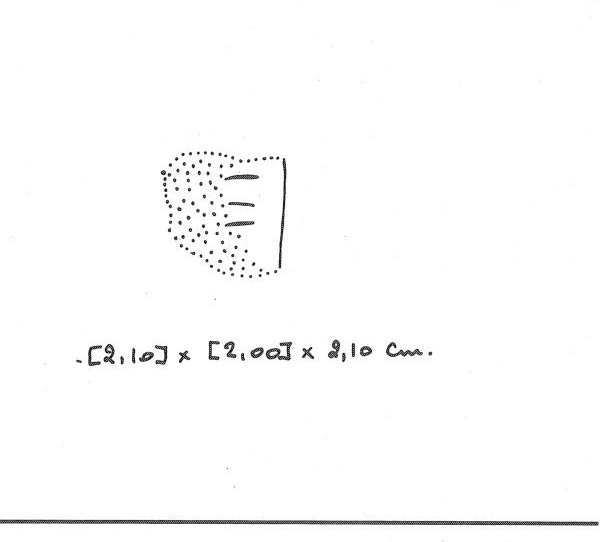 .[2,10] x [2,00] x 2,10 cm.